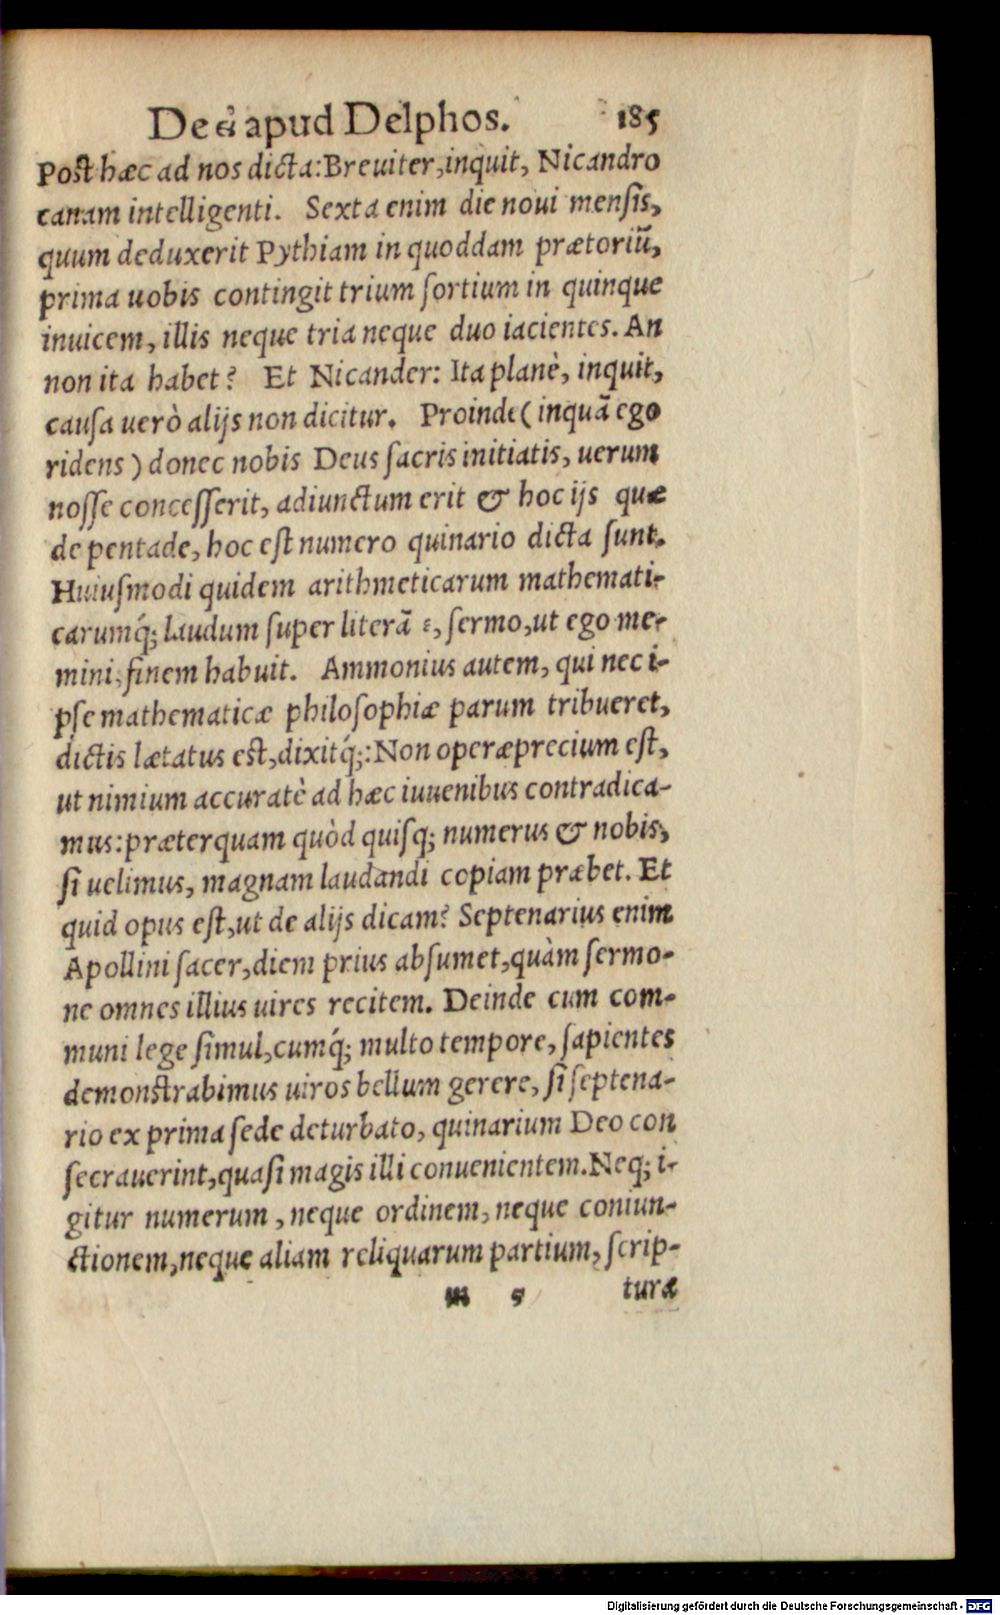 De ει apud Delphos. 185
Post hæc ad nos dicta: Breuiter, inquit, Nicandro
canam intelligenti. Sexta enim die noui mensis,
quum deduxerit Pythiam in quoddam prætoriũ,
prima uobis contingit trium sortium in quinque
inuicem, illis neque tria neque duo iacientes. An
non ita habet? Et Nicander: Ita planè, inquit,
causa uerò alijs non dicitur. Proinde (inquã ego
ridens) donec nobis Deus sacris initiatis, uerum
nosse concesserit, adiunctum erit & hoc ijs quæ
de pentade, hoc est numero quinario dicta sunt.
Huiusmodi quidem arithmeticarum mathemati-
carumq́; laudum super literã ε, sermo, ut ego me-
mini, finem habuit. Ammonius autem, qui nec i-
pse mathematicæ philosophiæ parum tribueret,
dictis lætatus est, dixitq́;: Non operæprecium est,
ut nimium accuratè ad hæc iuuenibus contradica-
mus: præterquam quòd quisq; numerus & nobis,
si uelimus, magnam laudandi copiam præbet. Et
quid opus est, ut de alijs dicam? Septenarius enim
Apollini sacer, diem prius absumet, quàm sermo-
ne omnes illius uires recitem. Deinde cum com-
muni lege simul, cumq́; multo tempore, sapientes
demonstrabimus uiros bellum gerere, si septena-
rio ex prima sede deturbato, quinarium Deo con
secrauerint, quasi magis illi conuenientem. Neq; i-
gitur numerum, neque ordinem, neque coniun-
ctionem, neque aliam reliquarum partium, scrip-
m 5 turæ
Digitalisierung gefördert durch die Deutsche Forschungsgemeinschaft - DFG